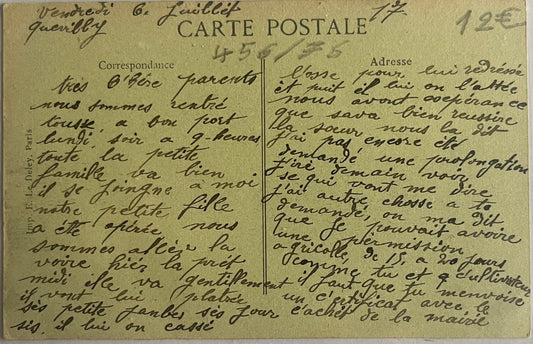 Vendredi 6 Juillet 17
Quevilly
CARTE POSTALE
12€
456/76
Correspondance
Adresse
très Chère parents
nous sommes rentré
tousse a bon port
lundi, soir a 9-heures
toute la petite
famille va bien
il se joingne a moi
notre petite fille
a été opérée nous
sommes aller la
voire hièr la prèt
midi elle va gentillement
il vont lui platré
sès petite janbes sès jour
si, il lui on cassé
l'osse pour, lui redréssé
et puit il lui on l'attée
nous avont éspérance
que sava bien reussire
la sœur nous la dit
j'ai pas encore été
demandé une prolongation
j'irè demain voir
se qui vont me dire
j'ai autre chosse a to
demandé, on ma dit
que je pouvait avoire
une permission
agricolle, de 15, a 20 jours
comme tu et a cultivateur
il faut que tu menvoise
un cértificat avec le
cachét de la mairie
Imp. E. Deley, Paris